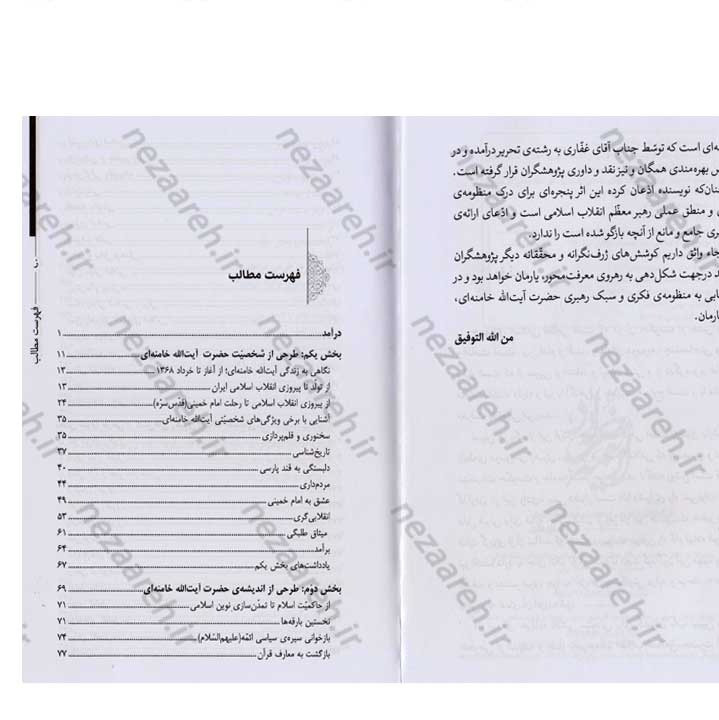 ه‌ای است که توسّط جناب آقای غفّاری به رشته‌ی تحریر درآمده و در
بهره‌مندی همگان و نیز نقد و داوری پژوهشگران قرار گرفته است.
نان‌که نویسنده اذعان کرده این اثر پنجره‌ای برای درک منظومه‌ی
و منطق عملی رهبر معظّم انقلاب اسلامی است و ادّعای ارائه‌ی
ری جامع و مانع از آنچه بازگو شده است را ندارد.
جاء واثق داریم کوشش‌های ژرف‌نگرانه و محقّقانه دیگر پژوهشگران
د درجهت شکل‌دهی به رهروی معرفت‌محور، یارمان خواهد بود و در
یابی به منظومه‌ی فکری و سبک رهبری حضرت آیت‌الله خامنه‌ای،
یارمان.
من الله التوفیق
فهرست مطالب
فهرست مطالب
درآمد ۱
بخش یکم: طرحی از شخصیّت حضرت آیت‌الله خامنه‌ای ۱۱
نگاهی به زندگی آیت‌الله خامنه‌ای؛ از آغاز تا خرداد ۱۳۶۸ ۱۳
از تولد تا پیروزی انقلاب اسلامی ایران ۱۳
از پیروزی انقلاب اسلامی تا رحلت امام خمینی(قدّس‌سرّه) ۲۴
آشنایی با برخی ویژگی‌های شخصیّتی آیت‌الله خامنه‌ای ۳۵
سخنوری و قلم‌پردازی ۳۵
تاریخ‌شناسی ۳۷
دلبستگی به قند پارسی ۴۰
مردم‌داری ۴۴
عشق به امام خمینی ۴۹
انقلابی‌گری ۵۳
میثاق طلبگی ۶۱
برآمد ۶۴
یادداشت‌های بخش یکم ۶۷
بخش دوّم: طرحی از اندیشه‌ی حضرت آیت‌الله خامنه‌ای ۶۹
از حاکمیّت اسلام تا تمدّن‌سازی نوین اسلامی ۷۱
نخستین بارقه‌ها ۷۱
بازخوانی سیره‌ی سیاسی ائمّه(علیهم‌السّلام) ۷۴
بازگشت به معارف قرآن ۷۷
nezaareh.ir
nezaareh.ir
nezaareh.ir
nezaareh.ir
nezaareh.ir
nezaareh.ir
nezaareh.ir
nezaareh.ir
nezaareh.ir
nezaareh.ir